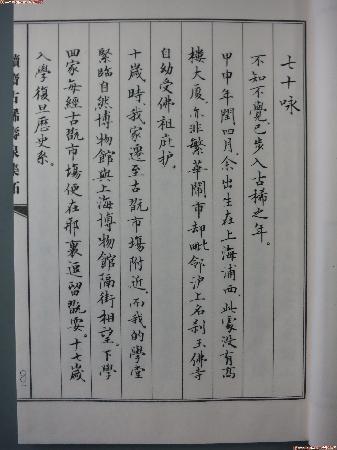 七十咏
不知不覺已步入古稀之年。
甲申年閏四月余出生在上海浦西此處没有高
樓大廈亦非繁華鬧市却毗邻沪上名刹玉佛寺
自幼受佛祖庇护。
十歲時我家遷至古翫市場附近而我的學堂
緊臨自然博物館與上海博物館隔街相望下學
回家每經古翫市場便在那裏逗留翫耍。十七歲
入學復旦歷史系。